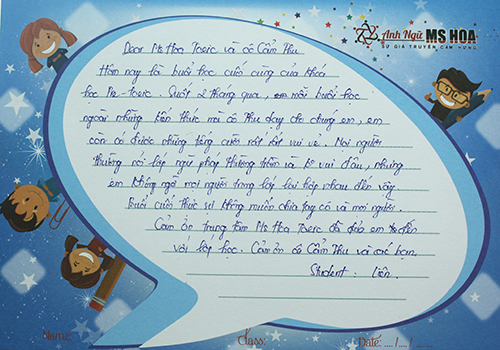 Anh Ngữ MS HOA
SỨ GIẢ TRUYỀN CẢM HỨNG
Dear Ms Hoa Toeic và cô Cẩm Thu
Hôm nay là buổi học cuối cùng của khoá
học Pre-Toeic. Suốt 2 tháng qua, em mỗi buổi học
ngoài những kiến thức mà cô Thu dạy cho chúng em, em
còn có được những tiếng cười rất rất vui vẻ. Mọi người
thường nói lớp ngữ pháp thường trầm và k vui đâu, nhưng
em không ngờ mọi người trong lớp lại hợp nhau đến vậy
Buổi cuối thực sự không muốn chia tay cô và mọi người.
Cảm ơn trung tâm Ms Hoa Toeic đã đưa em đến
với lớp học. Cảm ơn cô Cẩm Thu và các bạn.
Student : Liên.
Name:
Class:
Date: .../.../